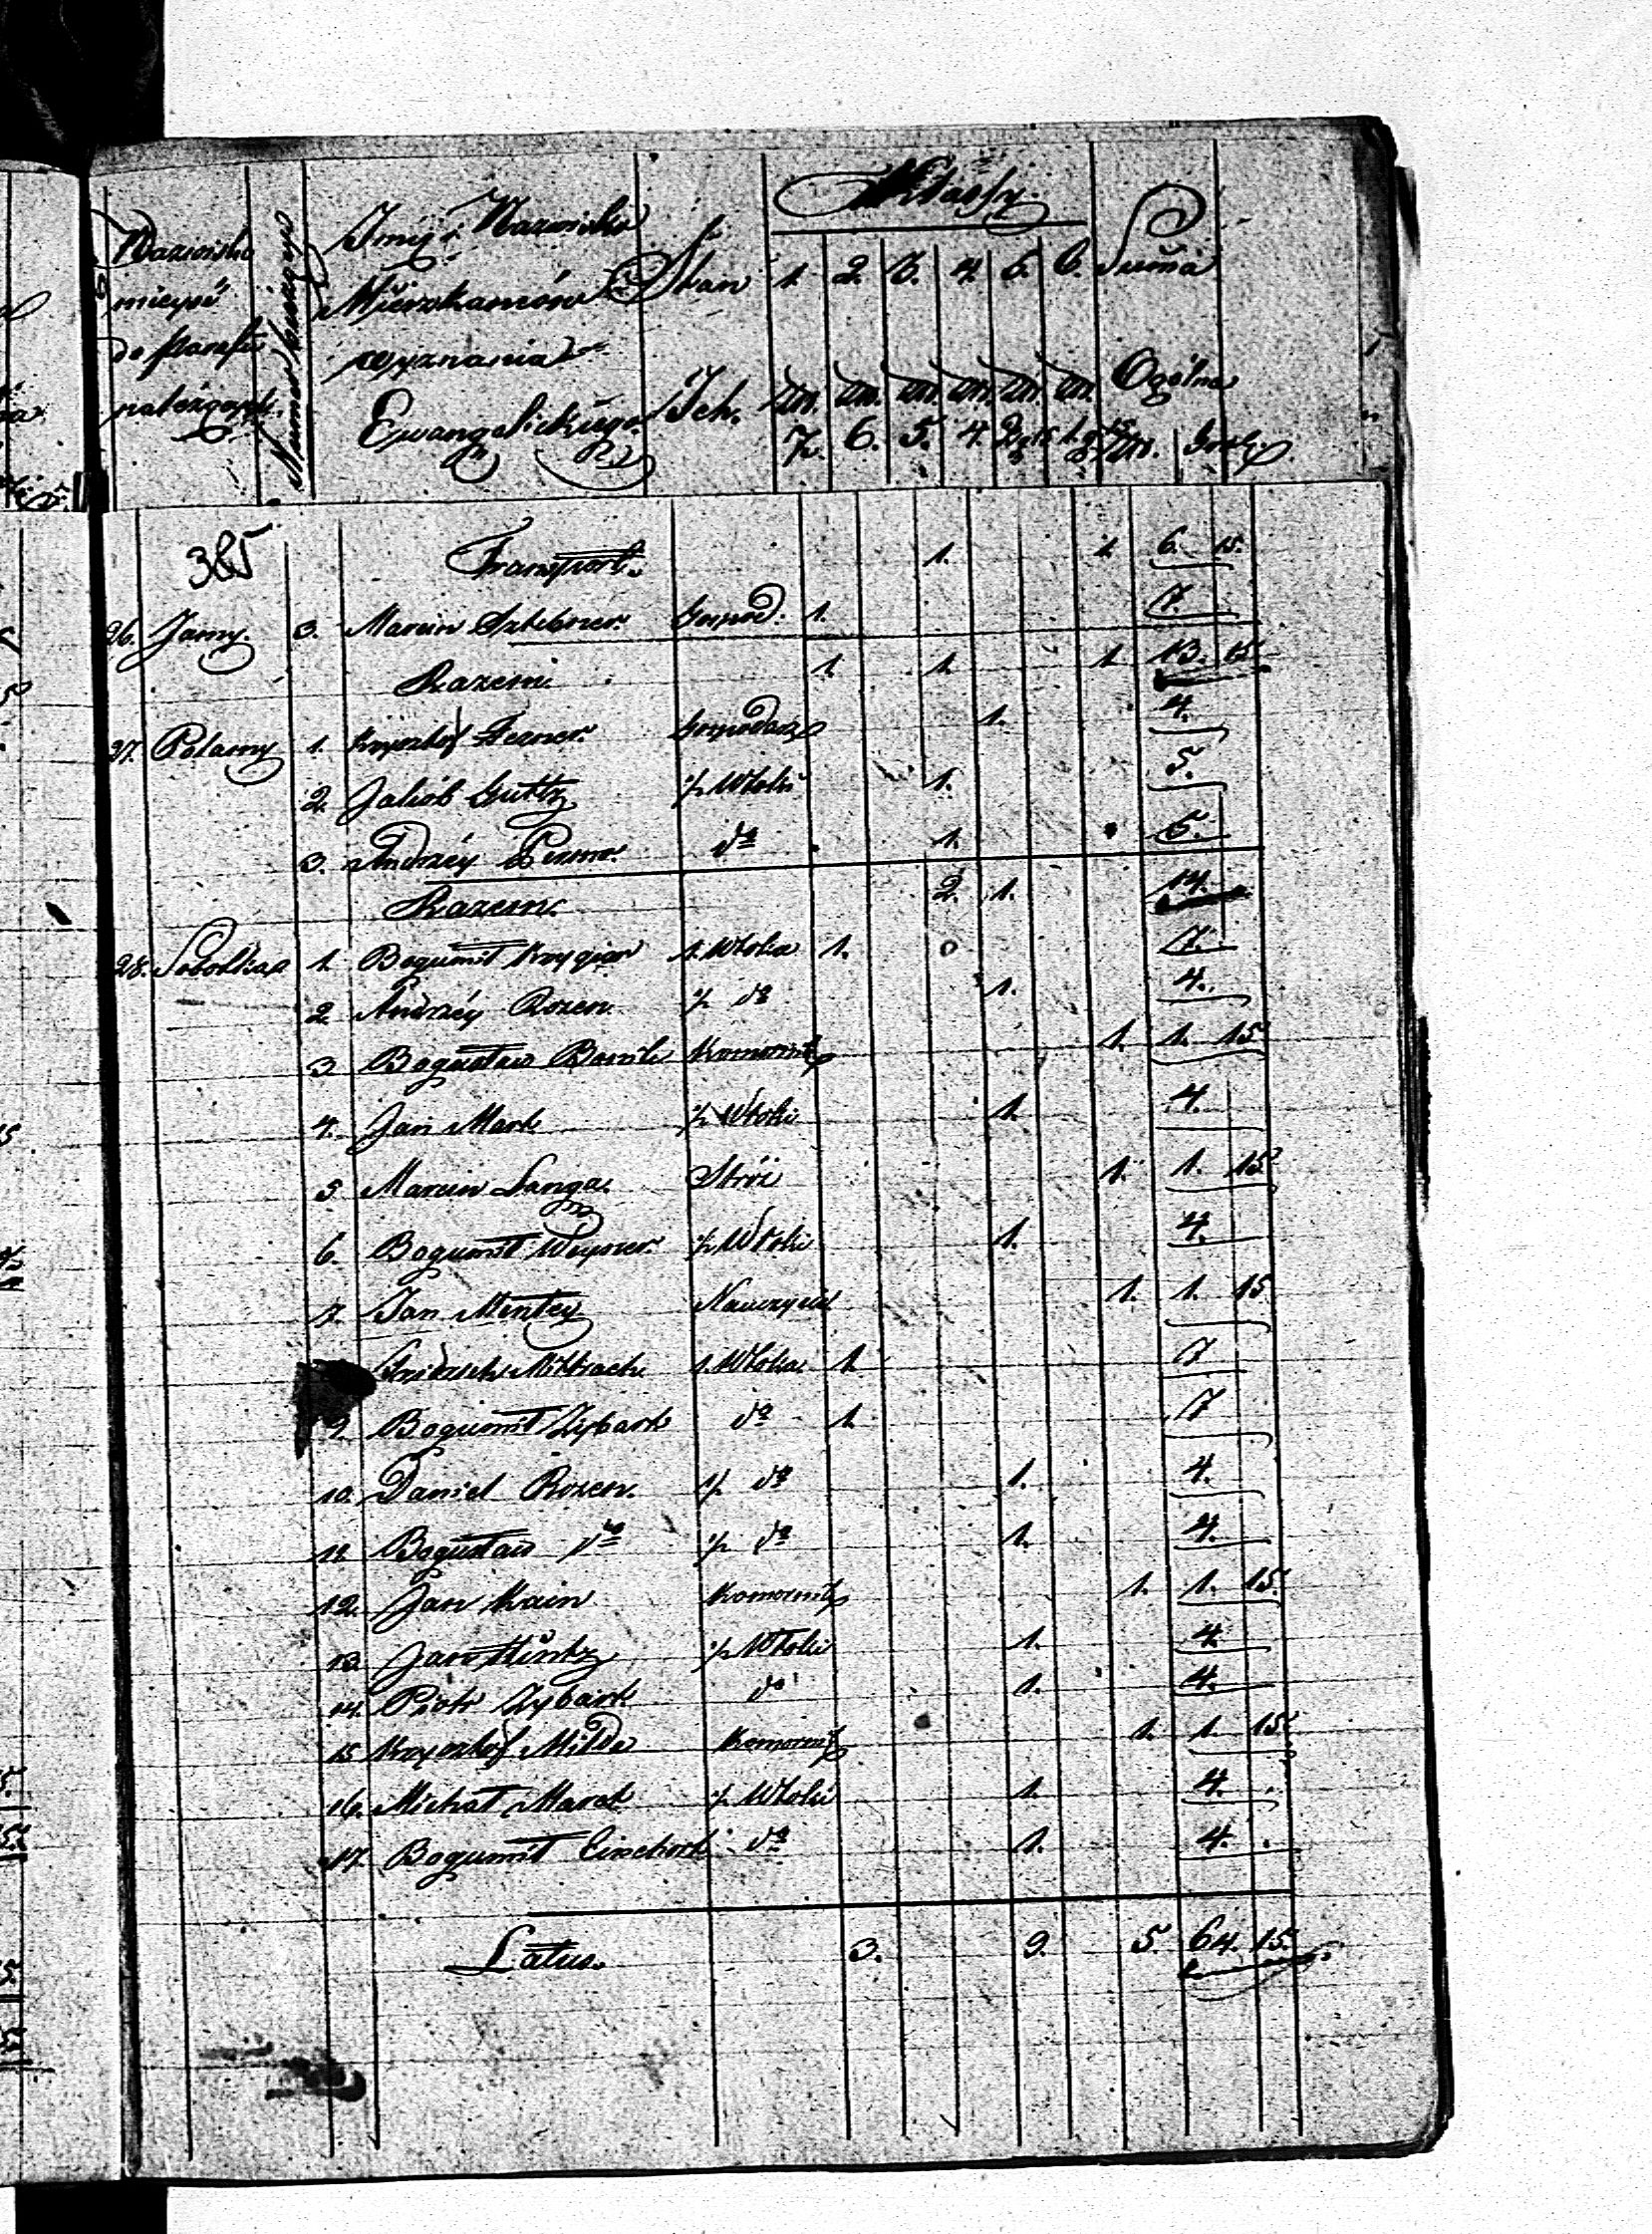 Nazwisko mieysc do Parafii należących
Numer bieżący
Imię i Nazwisko Mieszkańców wyznania Ewangelickiego
Stan Ich.
Klassy
1. 2. 3. 4. 5. 6.
Zło. Zło. Zło. Zło. Zło. Zło.
7. 6. 5. 4. 15 1. 15
Suma Ogólna
Zło. Groszy
385
Transport. 1. 1. 6. 15.
26. Jamy. 3. Marcin Gospod: 1. 7.
Razem. 1. 1. 1. 13. 15.
27. Polamy 1. Krysztof Fezner. Gospodarz 1. 4.
2. Jakób Guttz ½ Włoki 1. 5.
3. Andrzéy do 1. 5.
Razem. 2. 1. 14.
28. Sobótka 1. Bogumił 1. Włoka 1. 7.
2. Andrzéy Rozen. ½ do 1. 4.
3. Bogusław Komornik 1. 1. 15
4. Jan Mark ½ Włoki 1. 4.
5. Marcin Langa. Stróż 1. 1. 15
6. Bogumił Weysner. ½ Włoki 1. 4.
7. Jan Mentey Nauczyciel 1. 1. 15
Fridrich 1. Włoka 1. 7
9. Bogumił Zybart do 1. 7
10. Daniel Rozen. ½ do 1. 4.
11. Bogusław do ½ do 1. 4.
12. Jan Kain Komornik 1. 1. 15.
13. Jan Mintz ½ Włoki 1. 4.
14. Piotr Zybart do 1. 4.
15. Krysztof Milde Komornik 1. 1. 15.
16. Michał Marek ½ Włoki 1. 4.
17. Bogumił do 1. 4.
Latus. 3. 9. 5. 64. 15.